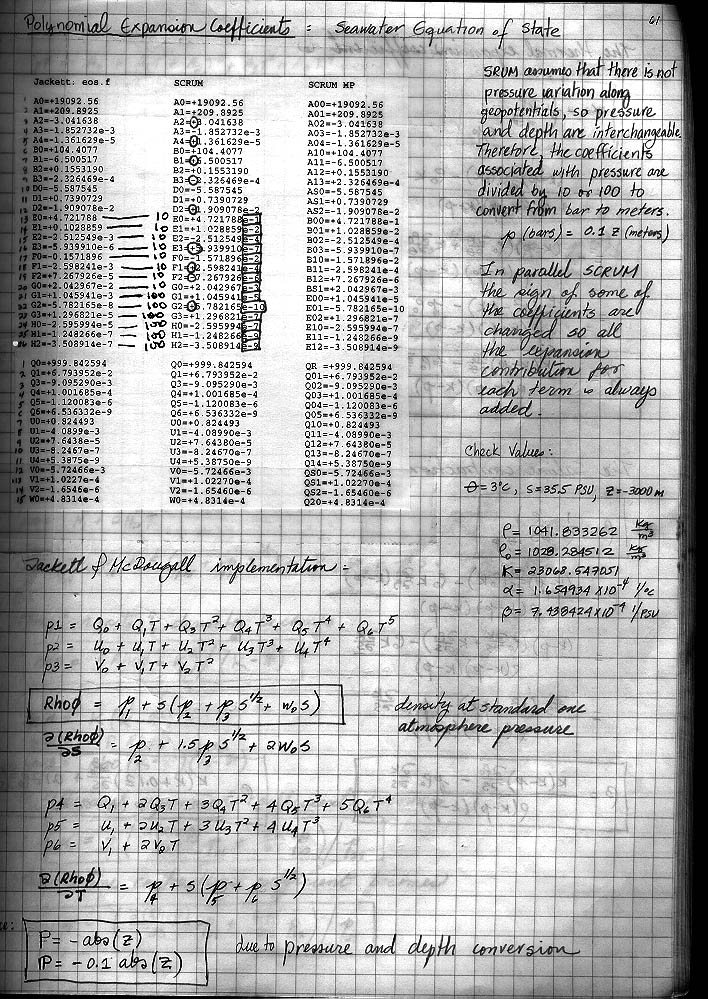 61
Polynomial Expansion Coefficients : Seawater Equation of State
Jackett: eos.f
1 A0=+19092.56
2 A1=+209.8925
3 A2=-3.041638
4 A3=-1.852732e-3
5 A4=-1.361629e-5
6 B0=+104.4077
7 B1=-6.500517
8 B2=+0.1553190
9 B3=+2.326469e-4
10 D0=-5.587545
11 D1=+0.7390729
12 D2=-1.909078e-2
13 E0=+4.721788 10
14 E1=+0.1028859 10
15 E2=-2.512549e-4 10
16 E3=-5.939910e-6 10
17 F0=-0.1571896 10
18 F1=-2.598241e-4 10
19 F2=+7.267926e-5 10
20 G0=+2.042967e-2 10
21 G1=+1.045941e-5 100
22 G2=-5.782165e-10 100
23 G3=+1.296821e-5 100
24 H0=-2.595994e-5 100
25 H1=-1.248266e-7 100
26 H2=-3.508914e-7 100
1 Q0=+999.842594
2 Q1=+6.793952e-2
3 Q3=-9.095290e-3
4 Q4=+1.001685e-4
5 Q5=-1.120083e-6
6 Q6=+6.536332e-9
7 U0=+0.824493
8 U1=-4.0899e-3
9 U2=+7.6438e-5
10 U3=-8.2467e-7
11 U4=+5.3875e-9
12 V0=-5.72466e-3
13 V1=+1.0227e-4
14 V2=-1.6546e-6
15 W0=+4.8314e-4
SCRUM
A0=+19092.56
A1=+209.8925
A2=+3.041638
A3=-1.852732e-3
A4=+1.361629e-5
B0=+104.4077
B1=+6.500517
B2=+0.1553190
B3=-2.326469e-4
D0=-5.587545
D1=+0.7390729
D2=+1.909078e-2
E0=+4.721788e-1
E1=+1.028859e-2
E2=-2.512549e-5
E3=+5.939910e-7
F0=-1.571896e-2
F1=+2.598241e-5
F2=-7.267926e-6
G0=+2.042967e-3
G1=+1.045941e-5
G2=+5.782165e-10
G3=+1.296821e-7
H0=-2.595994e-7
H1=-1.248266e-9
H2=-3.508914e-9
Q0=+999.842594
Q1=+6.793952e-2
Q3=-9.095290e-3
Q4=+1.001685e-4
Q5=-1.120083e-6
Q6=+6.536332e-9
U0=+0.824493
U1=-4.08990e-3
U2=+7.64380e-5
U3=-8.24670e-7
U4=+5.38750e-9
V0=-5.72466e-3
V1=+1.02270e-4
V2=-1.65460e-6
W0=+4.8314e-4
SCRUM MP
A00=+19092.56
A01=+209.8925
A02=-3.041638
A03=-1.852732e-3
A04=-1.361629e-5
A10=+104.4077
A11=-6.500517
A12=+0.1553190
A13=+2.326469e-4
AS0=-5.587545
AS1=+0.7390729
AS2=-1.909078e-2
B00=+4.721788e-1
B01=+1.028859e-2
B02=-2.512549e-4
B03=-5.939910e-7
B10=-1.571896e-2
B11=-2.598241e-4
B12=+7.267926e-6
BS1=+2.042967e-3
E00=+1.045941e-5
E01=-5.782165e-10
E02=+1.296821e-7
E10=-2.595994e-7
E11=-1.248266e-9
E12=-3.508914e-9
QR =+999.842594
Q01=+6.793952e-2
Q02=-9.095290e-3
Q03=+1.001685e-4
Q04=-1.120083e-6
Q05=+6.536332e-9
Q10=+0.824493
Q11=-4.08990e-3
Q12=+7.64380e-5
Q13=-8.24670e-7
Q14=+5.38750e-9
QS0=-5.72466e-3
QS1=+1.02270e-4
QS2=-1.65460e-6
Q20=+4.8314e-4
SRUM assumes that there is not
pressure variation along
geopotentials, so pressure
and depth are interchangeable.
Therefore, the coefficients
associated with pressure are
divided by 10 or 100 to
convert from bar to meters.
p (bars) = 0.1 z (meters)
In parallel SCRUM
the sign of some of
the coefficients are
changed so all
the expansion
contribution for
each term is always
added.
Check Values:
θ = 3°C, S=35.5 PSU, Z=-3000 m
ρ = 1041.833262 kg/m³
ρ₀ = 1028.284512 kg/m³
K = 23068.547051
α = 1.654934 x10⁻⁴ 1/°C
β = 7.438424 x10⁻⁴ 1/PSU
Jackett & McDougall implementation:
p1 = Q₀ + Q₁T + Q₃T² + Q₄T³ + Q₅T⁴ + Q₆T⁵
p2 = U₀ + U₁T + U₂T² + U₃T³ + U₄T⁴
p3 = V₀ + V₁T + V₂T²
Rhoφ = p₁ + S(p₂ + p₃ S^1/2 + W₀S)
density at standard one
atmosphere pressure
∂(Rhoφ)/∂S = p₂ + 1.5 p₃ S^1/2 + 2W₀S
p4 = Q₁ + 2Q₃T + 3Q₄T² + 4Q₅T³ + 5Q₆T⁴
p5 = U₁ + 2U₂T + 3U₃T² + 4U₄T³
p6 = V₁ + 2V₂T
∂(Rhoφ)/∂T = p₄ + S(p₅ + p₆ S^1/2)
P = -abs(Z)
P = -0.1 abs(Z)
due to pressure and depth conversion